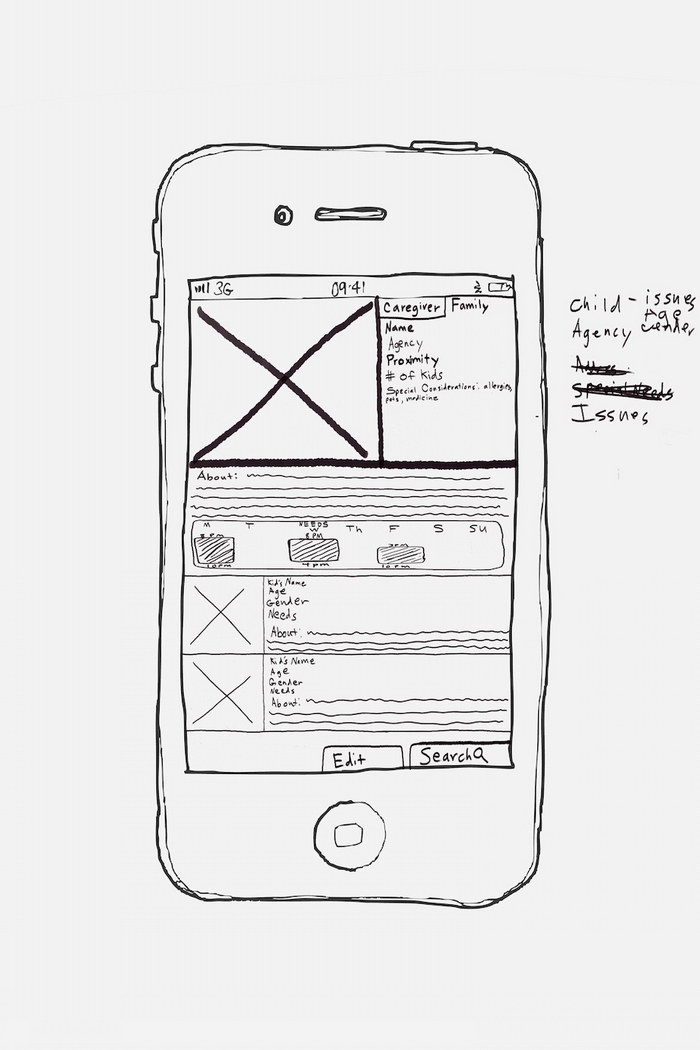 3G 09:41
Caregiver Family
Name
Agency
Proximity
# of Kids
Special Considerations: allergies,
pets, medicine
About:
NEEDS
M T W Th F S Su
8 PM
4 pm
10 pm
Kid's Name
Age
Gender
Needs
About:
Kid's Name
Age
Gender
Needs
About:
Edit Search
Child - issues
Age
Agency Gender
Special Needs
Issues